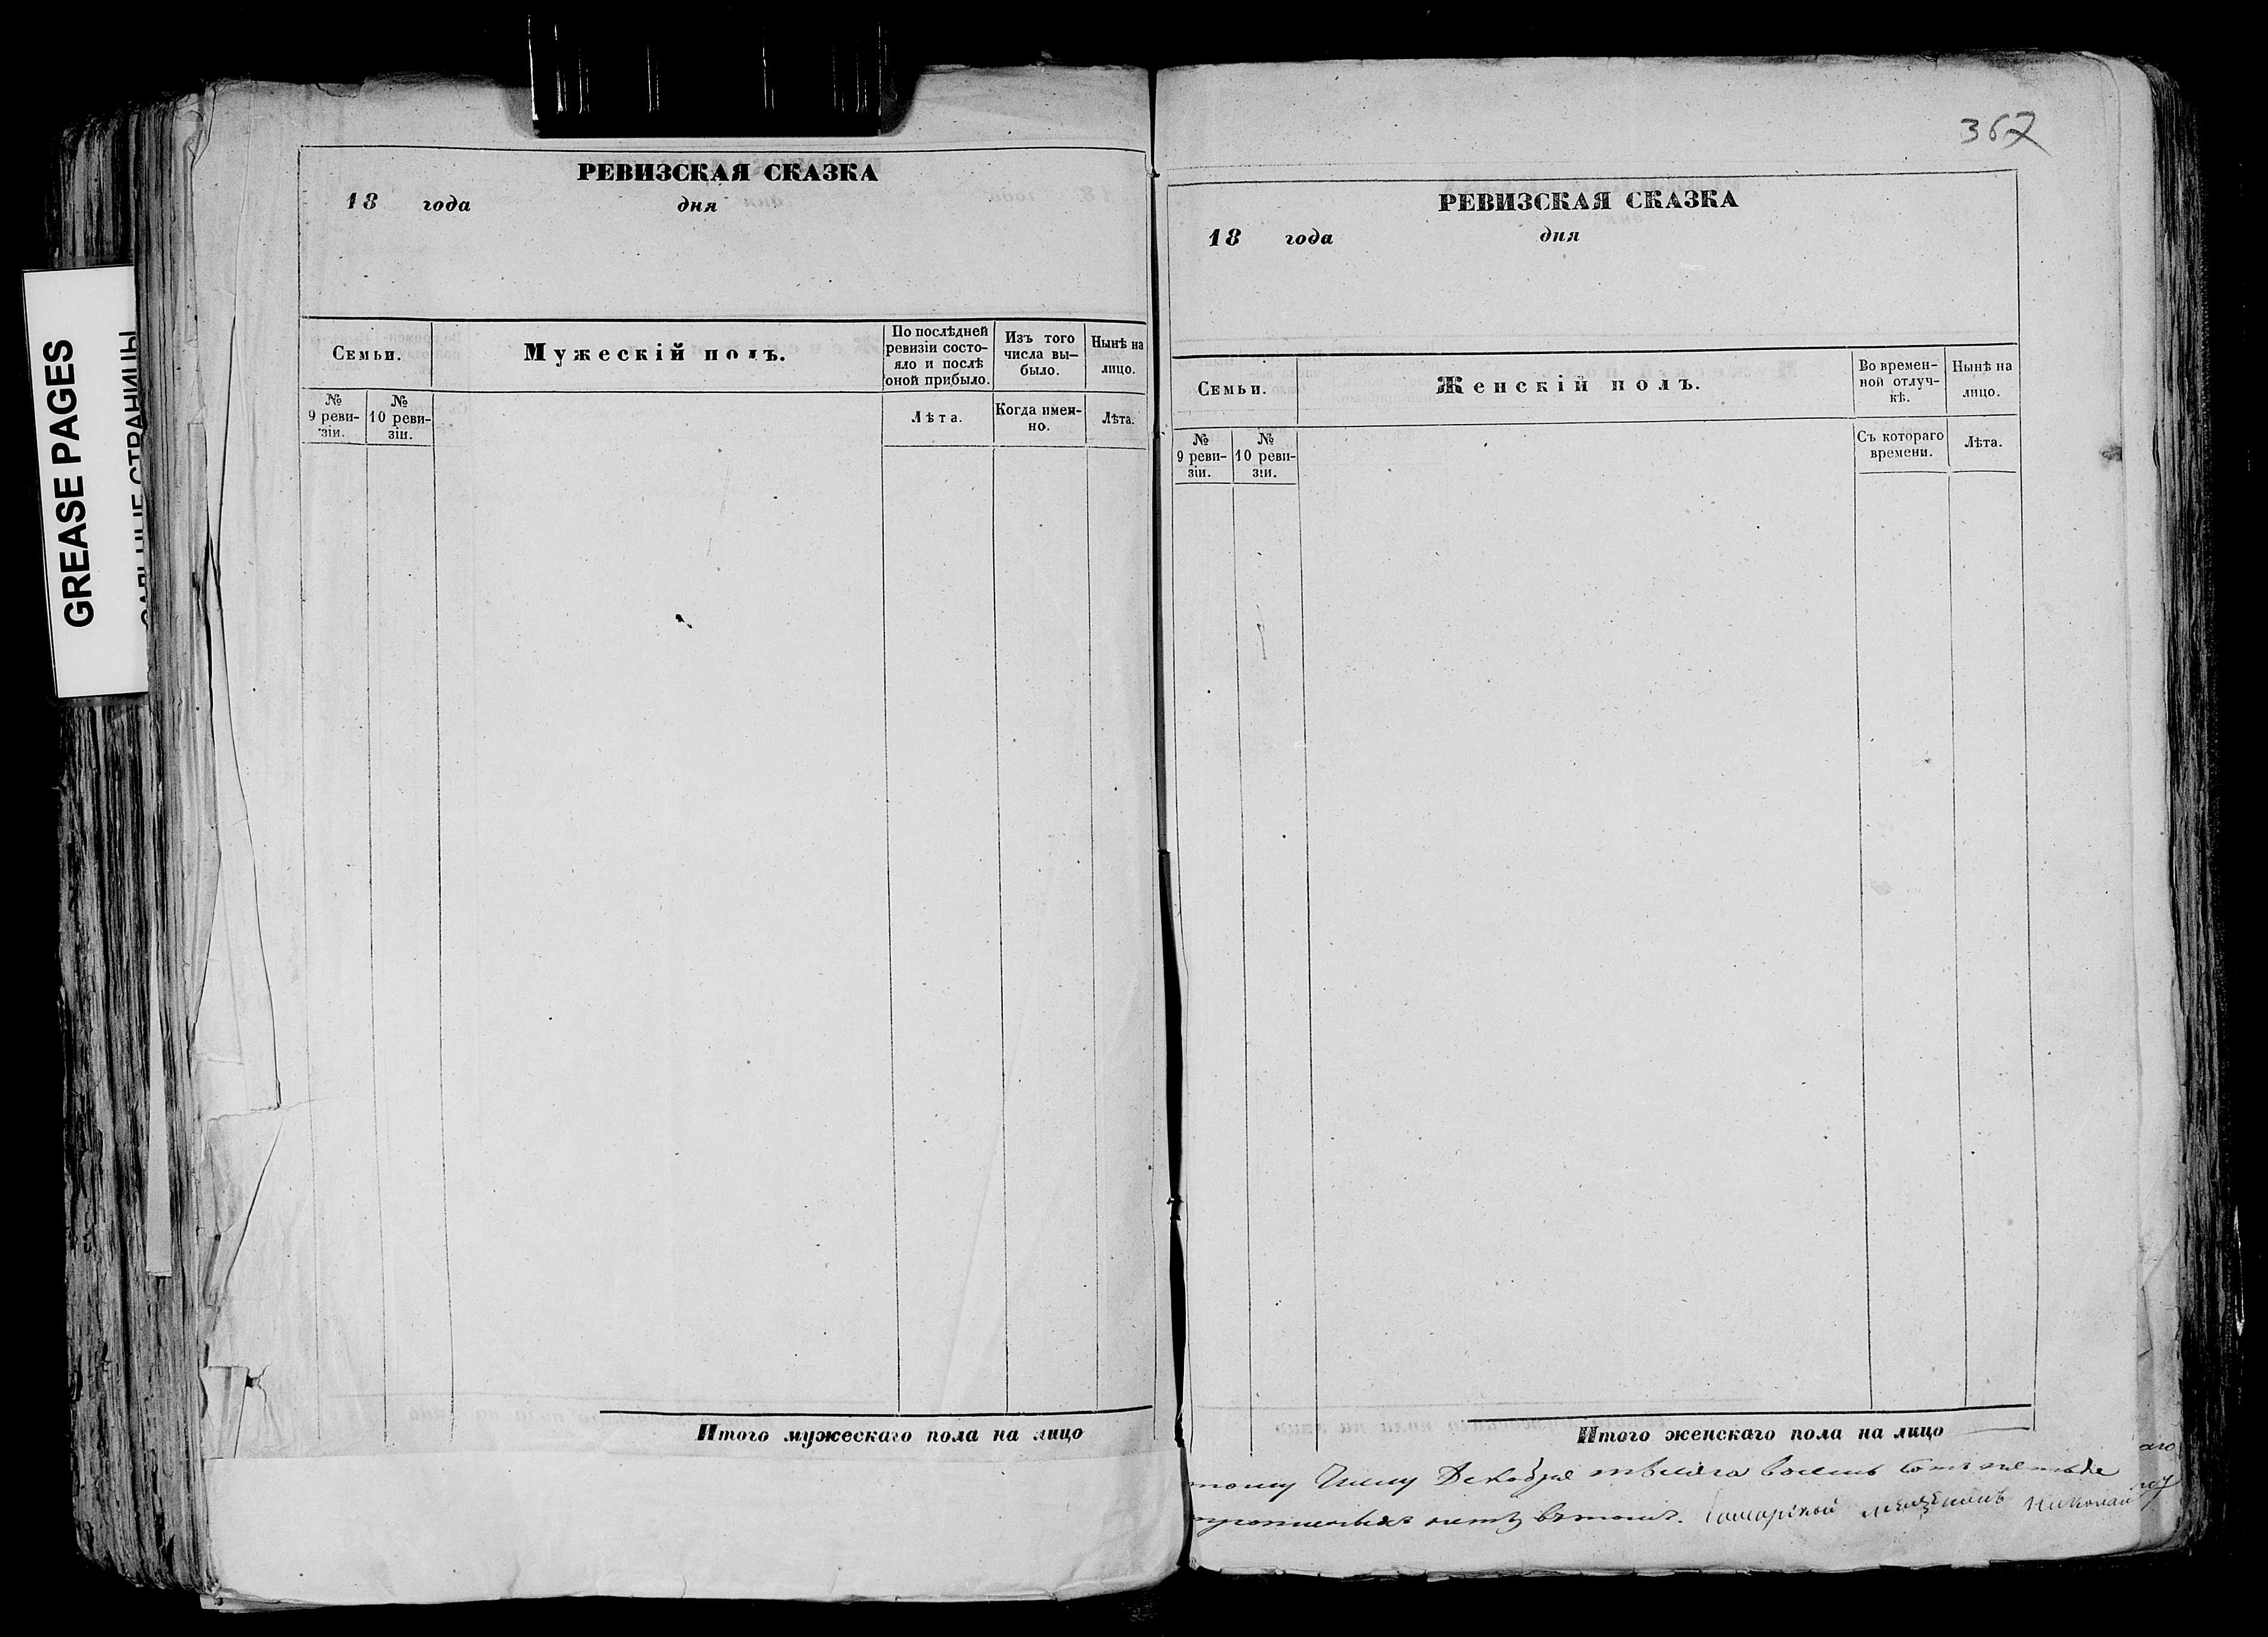 GREASE PAGES
РЕВИЗСКАЯ СКАЗКА
18 года дня
Семьи.
Мужескій полъ.
По послѣдней
ревизіи состо-
яло и послѣ
оной прибыло.
Изъ того
числа вы-
было.
Нынѣ на
лицо.
№
9 реви-
зіи.
№
10 реви-
зіи.
Лѣта.
Когда имен-
но.
Лѣта.
Итого мужескаго пола на лицо
367
РЕВИЗСКАЯ СКАЗКА
18 года дня
Семьи.
Женскій полъ.
Во времен-
ной отлуч-
кѣ.
Нынѣ на
лицо.
№
9 реви-
зіи.
№
10 реви-
зіи.
Съ котораго
времени.
Лѣта.
Итого женскаго пола на лицо
аго
тому Числу Декабря мѣсяца восемь сотъ
Николай